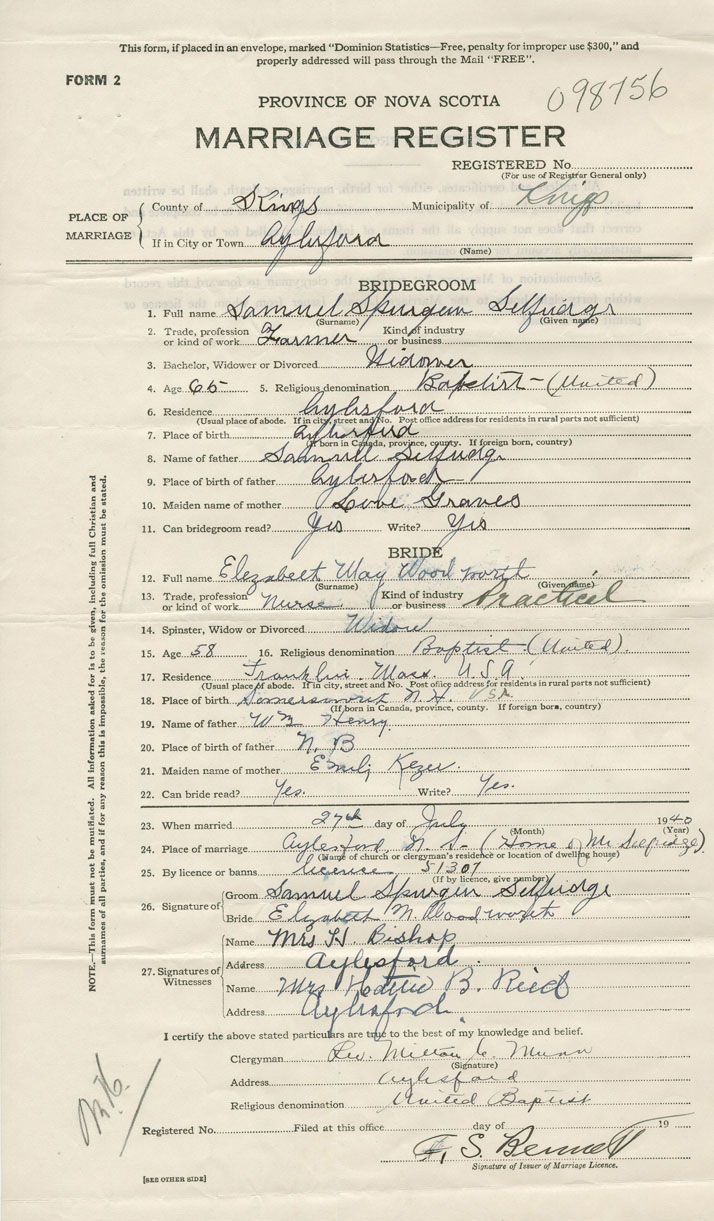 This form, if placed in an envelope, marked "Dominion Statistics—Free, penalty for improper use $300," and
properly addressed will pass through the Mail "FREE".
FORM 2
098756
PROVINCE OF NOVA SCOTIA
MARRIAGE REGISTER
REGISTERED No.
(For use of Registrar General only)
PLACE OF MARRIAGE
County of Kings Municipality of Kings
If in City or Town Aylesford
(Name)
BRIDEGROOM
1. Full name Samuel Spurgeon Selfridge
(Surname) (Given name)
2. Trade, profession or kind of work Farmer Kind of industry or business
3. Bachelor, Widower or Divorced Widower
4. Age 65 5. Religious denomination Baptist-(United)
6. Residence Aylesford
(Usual place of abode. If in city, street and No. Post office address for residents in rural parts not sufficient)
7. Place of birth Aylesford
(If born in Canada, province, county. If foreign born, country)
8. Name of father Samuel Selfridge
9. Place of birth of father Aylesford
10. Maiden name of mother Love Graves
11. Can bridegroom read? Yes Write? Yes
BRIDE
12. Full name Elizabeth May Woodworth
(Surname) (Given name)
13. Trade, profession or kind of work Nurse Kind of industry or business Practical
14. Spinster, Widow or Divorced Widow
15. Age 58 16. Religious denomination Baptist-(United).
17. Residence Franklin Mass. U.S.A.
(Usual place of abode. If in city, street and No. Post office address for residents in rural parts not sufficient)
18. Place of birth Somersworth N.H. USA
(If born in Canada, province, county. If foreign born, country)
19. Name of father Wm Henry.
20. Place of birth of father N.B
21. Maiden name of mother Emily Kezer.
22. Can bride read? Yes. Write? Yes.
23. When married 27th day of July 1940
(Month) (Year)
24. Place of marriage Aylesford N.S- (Home of Mr Selfridge)
(Name of church or clergyman's residence or location of dwelling house)
25. By licence or banns licence 51307
(If by licence, give number)
26. Signature of
Groom Samuel Spurgeon Selfridge
Bride Elizabeth M Woodworth
27. Signatures of Witnesses
Name Mrs H. Bishop
Address Aylesford.
Name Mrs B. Reid
Address Aylesford.
I certify the above stated particulars are true to the best of my knowledge and belief.
Clergyman Rev. Milton C. Munn
(Signature)
Address Aylesford
Religious denomination United Baptist
Registered No. Filed at this office day of 19
F. S. Bennett
Signature of Issuer of Marriage Licence.
[SEE OTHER SIDE]
NOTE.—This form must not be mutilated. All information asked for is to be given, including full Christian and
surnames of all parties, and if for any reason this is impossible, the reason for the omission must be stated.